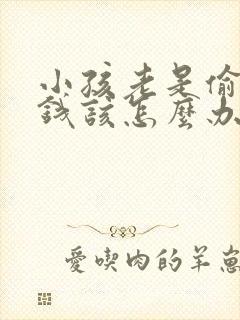 小孩老是偷
錢該怎麼办
愛喫肉的羊崽